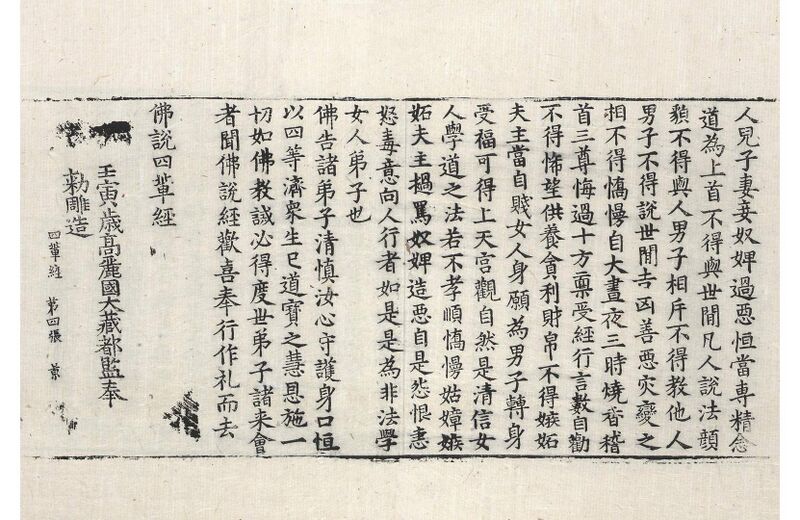 人兒子妻妾奴婢過惡恒當專精念
道為上首不得與世間凡人說法顔
䫉不得與人男子相斥不得教他人
男子不得說世間吉凶善惡灾變之
相不得憍慢自大晝夜三時燒香稽
首三尊悔過十方禀受經行言數自勸
不得悕望供養貪利財帛不得嫉妬
夫主當自賤女人身願為男子轉身
受福可得上天宮觀自然是清信女
人學道之法若不孝順憍慢姑嫜嫉
妬夫主撾罵奴婢造惡自是怨恨恚
怒毒意向人行者如是是為非法學
女人弟子也
佛告諸弟子清慎汝心守護身口恒
以四等濟衆生已道寶之慧恩施一
切如佛教誡必得度世弟子諸来會
者聞佛說經歡喜奉行作礼而去
佛說四輩經
壬寅歲高麗國大藏都監奉
勑雕造
四輩經 第四張 景